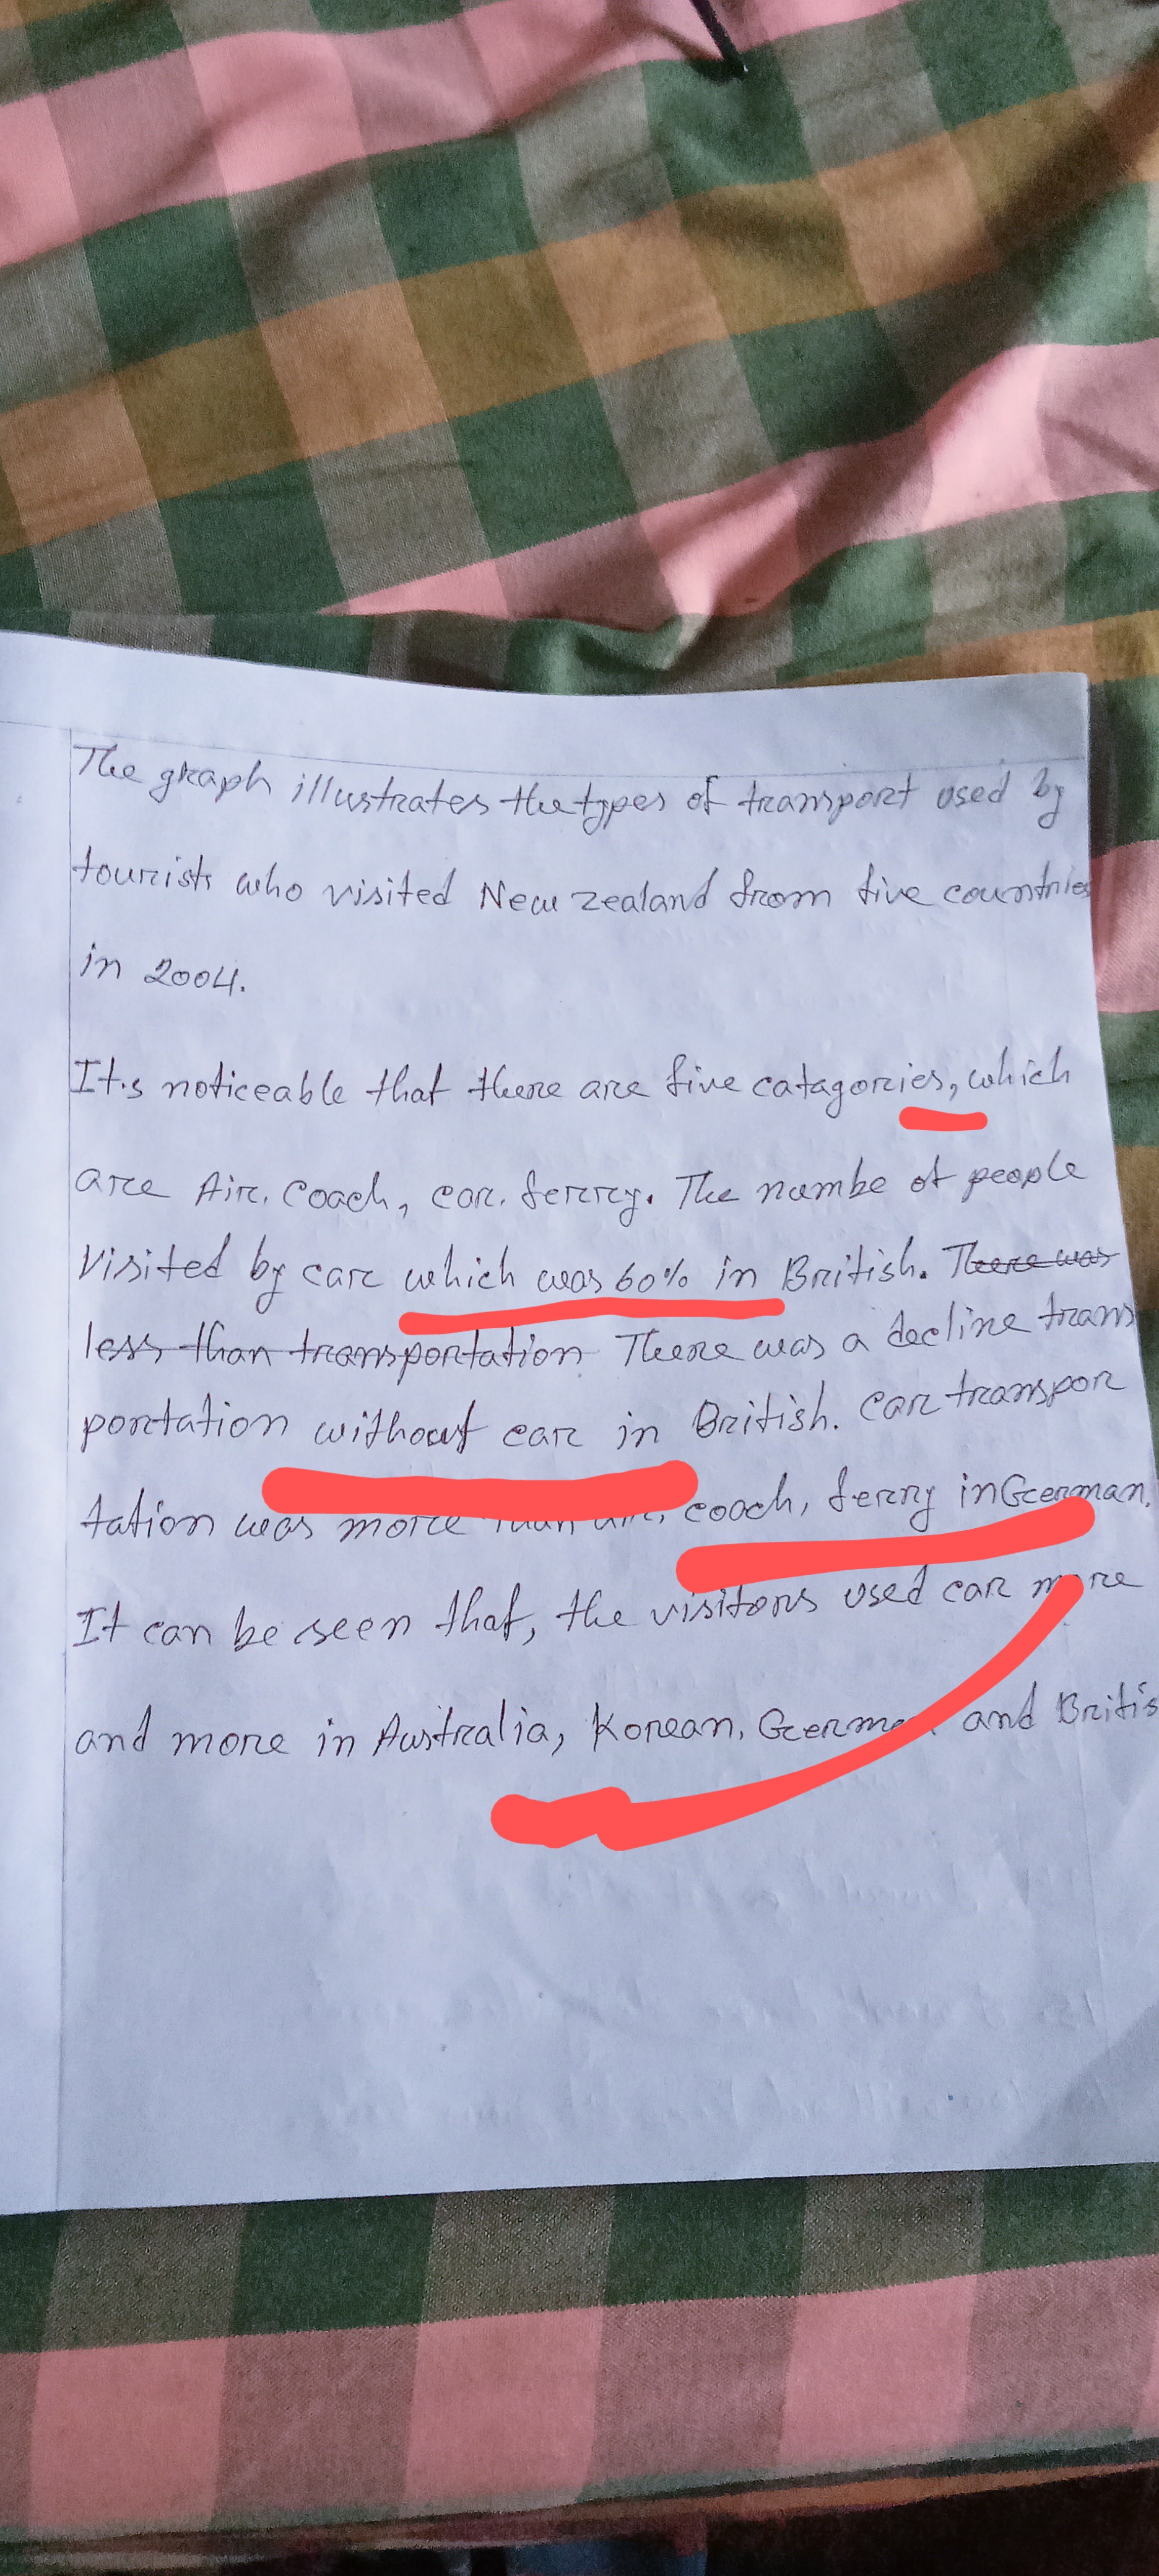 The graph illustrates the types of transport used by
tourists who visited New zealand from five countries
in 2004.
It's noticeable that there are five catagories, which
are Air, Coach, car, ferry. The numbe of people
Visited by car which was 60% in British. There was
less than transportation There was a decline trans
portation without car in British. Car transpor
tation was more than air, coach, ferry in German.
It can be seen that, the visitors used car more
and more in Australia, Korean, German and Britis